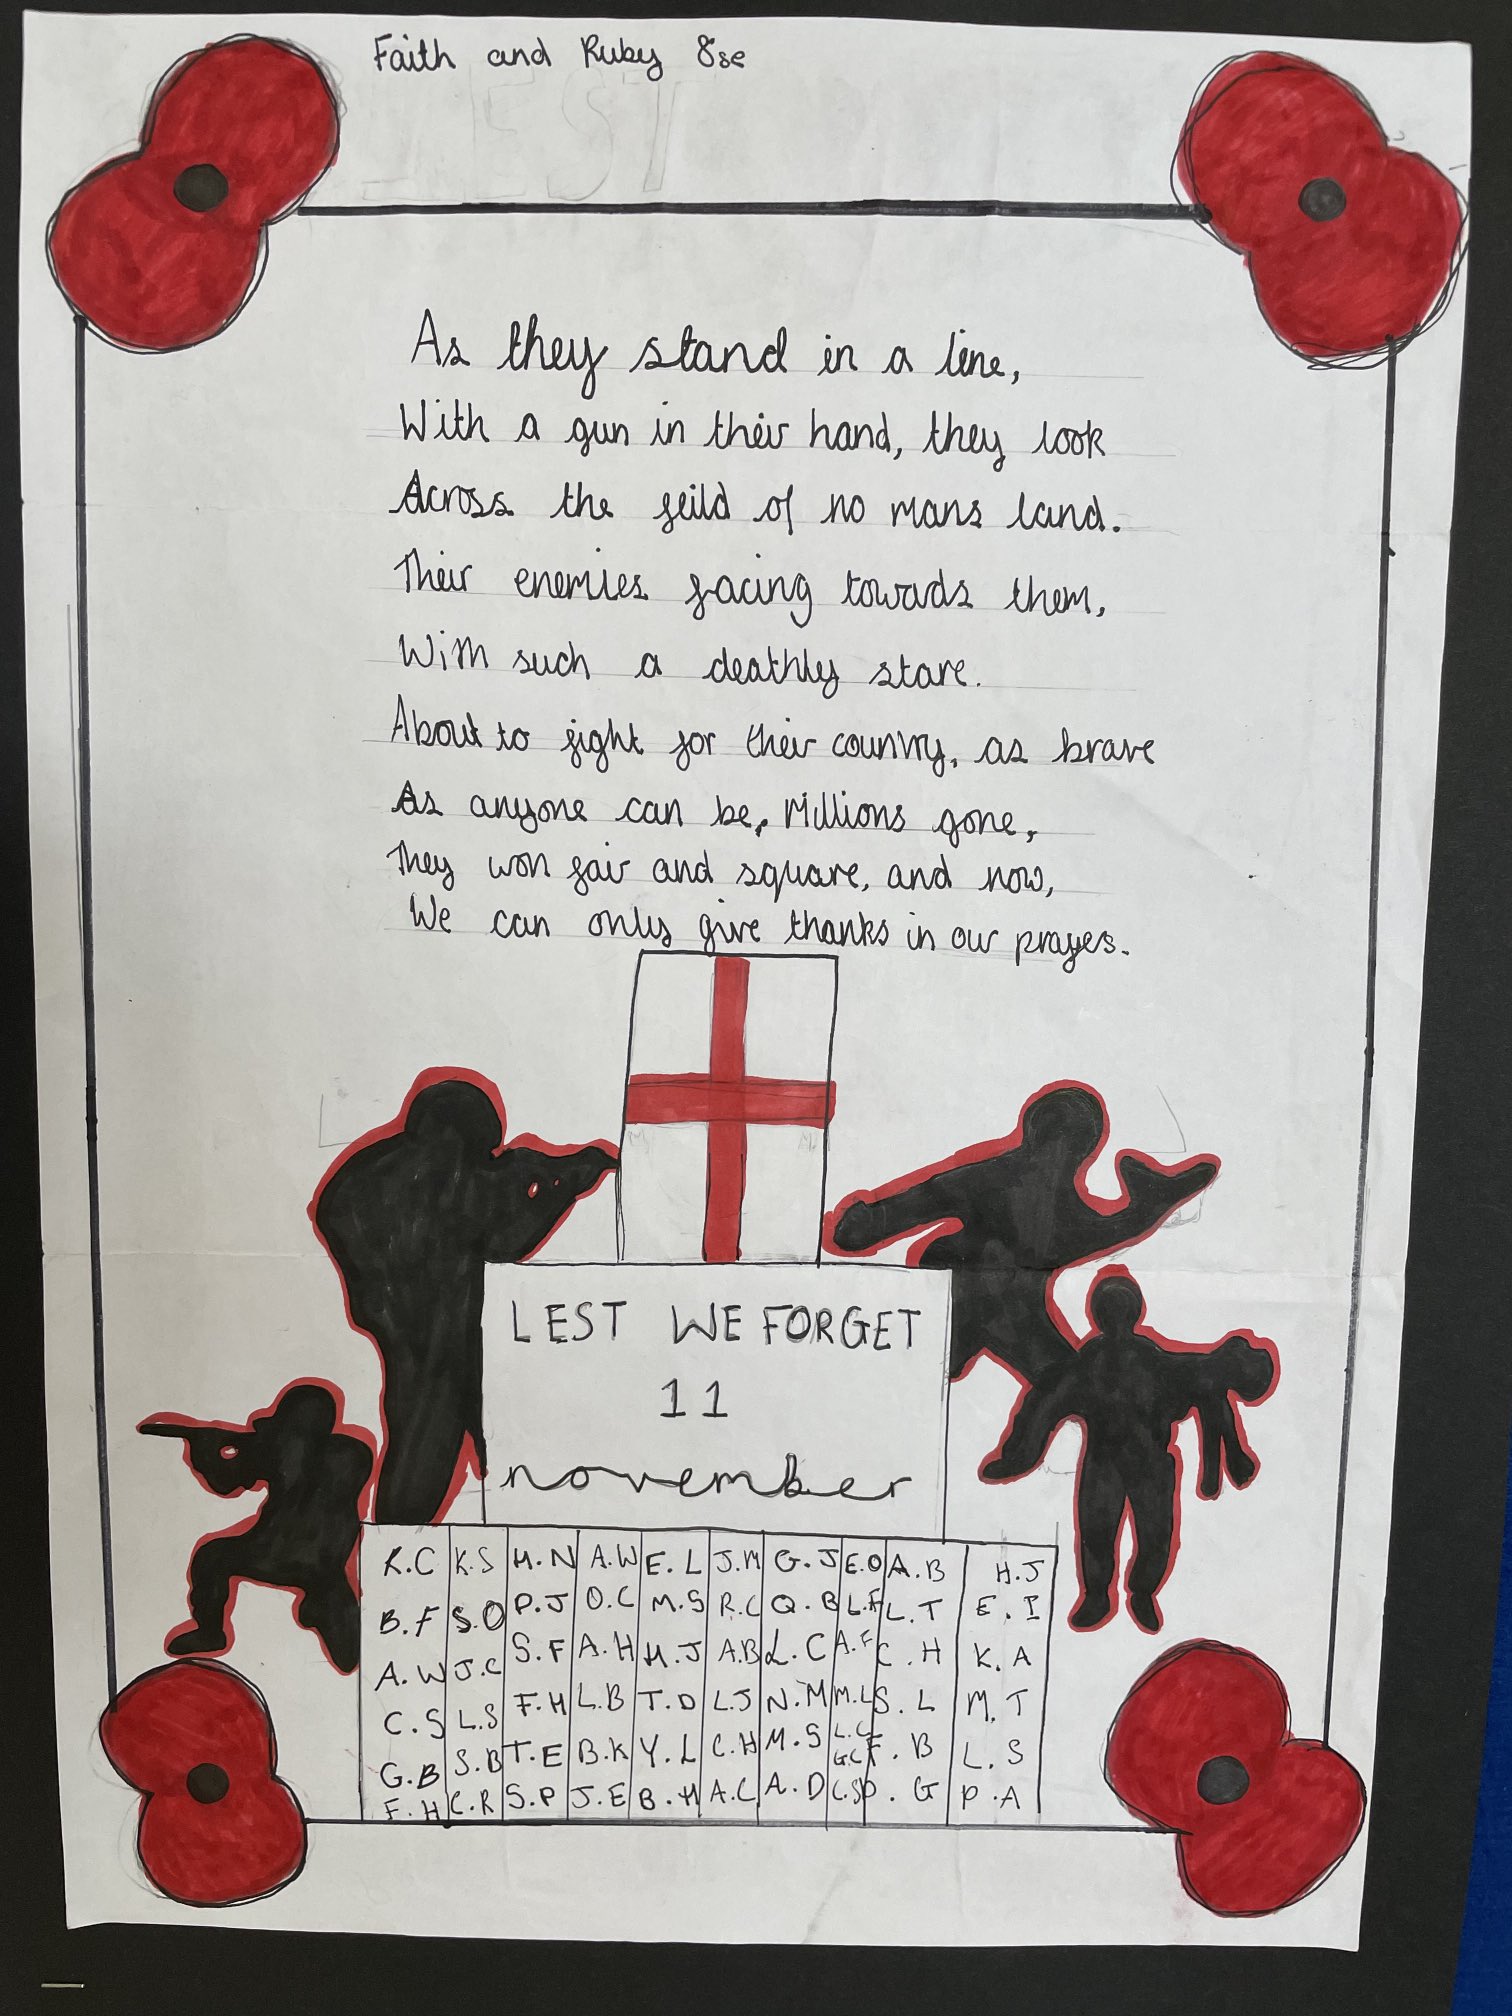 Faith and Ruby 8se
LEST
As they stand in a line,
With a gun in their hand, they look
Across the feild of no mans land.
Their enemies facing towads them,
With such a deathly stare.
About to fight for their country, as brave
As anyone can be, Millions gone,
They won fair and square, and now,
We can only give thanks in our prayes.
LEST WE FORGET
11
november
R.C K.S H.N A.W E.L J.M G.J E.O A.B H.J
B.F S.O P.J O.C M.S R.C Q.B L.F L.T E.I
A.W J.C S.F A.H H.J A.B L.C A.F C.H K.A
C.S L.S F.H L.B T.D L.J N.M M.L S.L M.T
G.B S.B T.E B.K Y.L C.H M.S L.C G.C F.B L.S
F.H C.R S.P J.E B.H A.C A.D C.S P.G P.A